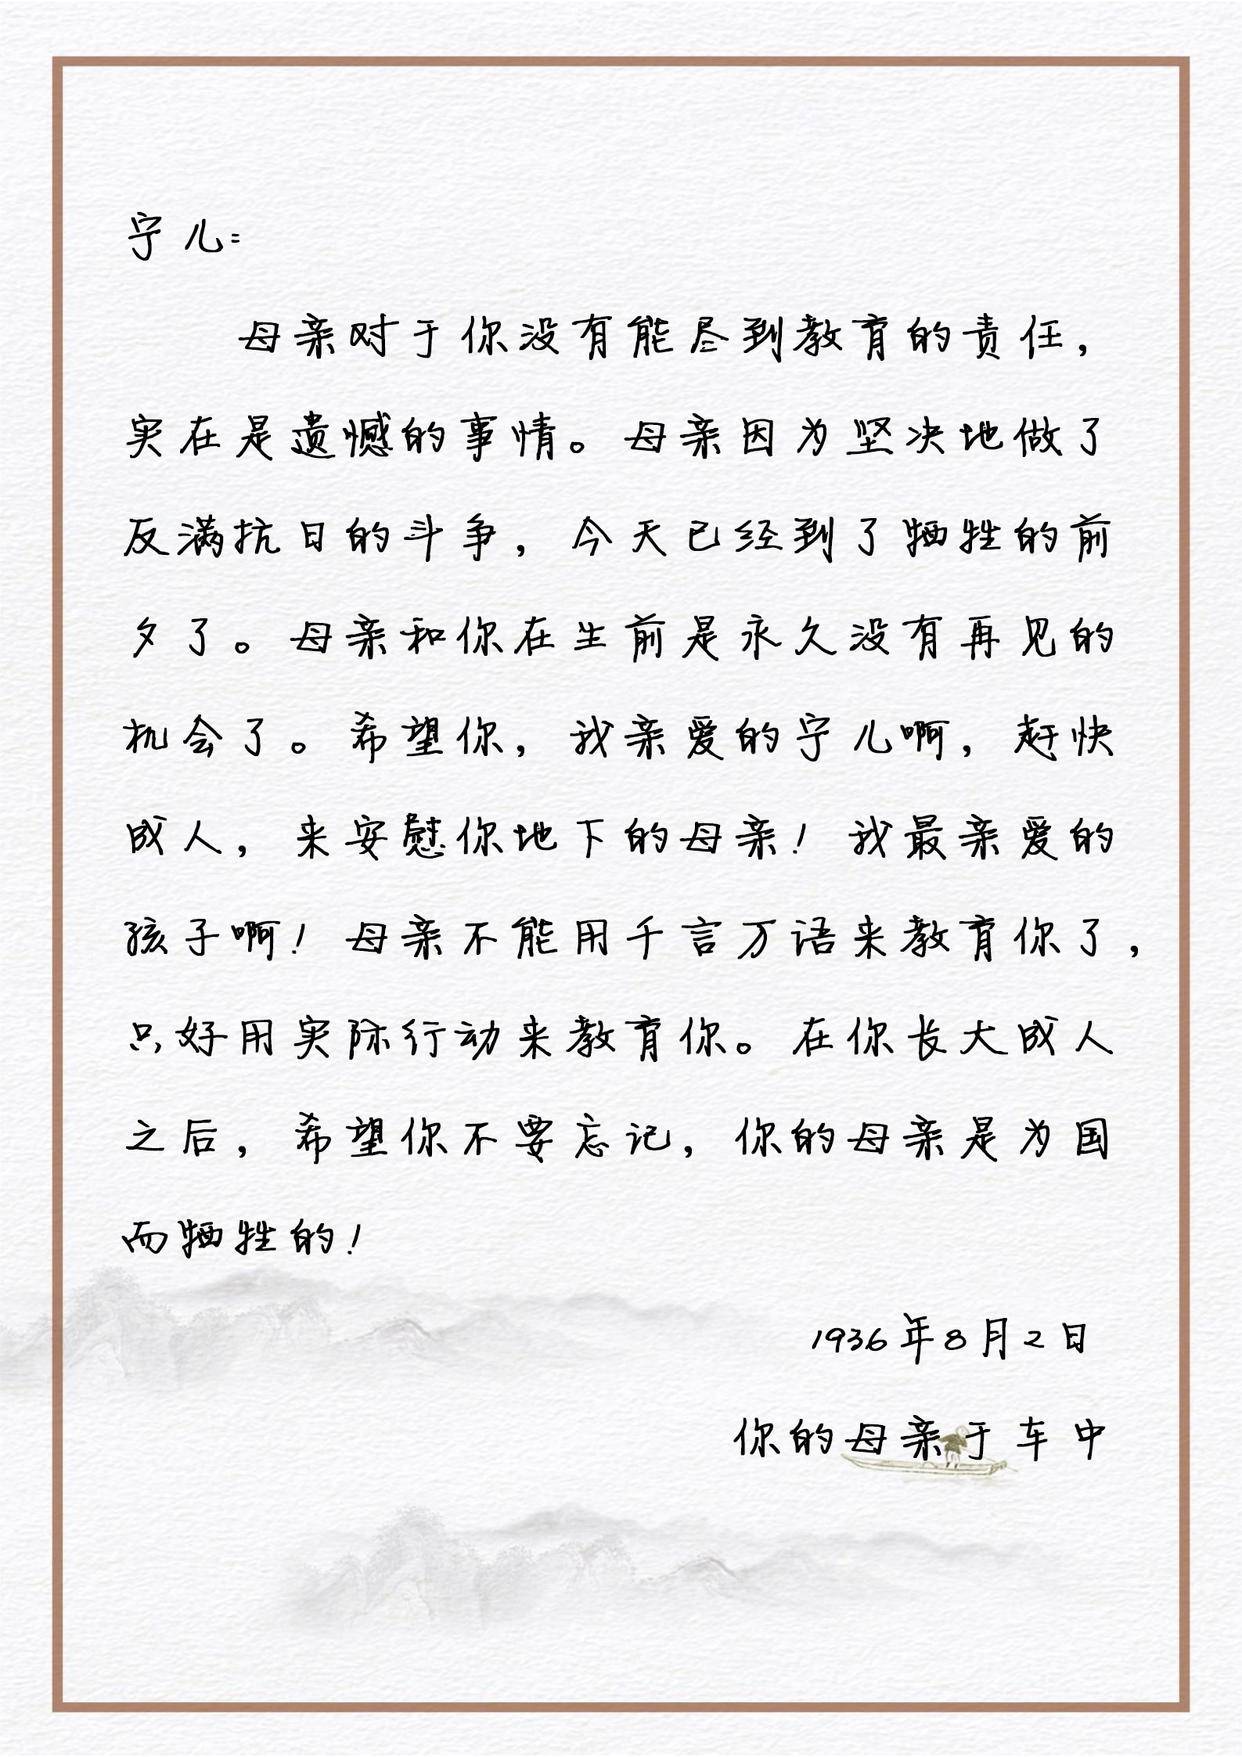 宁儿：
母亲对于你没有能尽到教育的责任，
实在是遗憾的事情。母亲因为坚决地做了
反满抗日的斗争，今天已经到了牺牲的前
夕了。母亲和你在生前是永久没有再见的
机会了。希望你，我亲爱的宁儿啊，赶快
成人，来安慰你地下的母亲！我最亲爱的
孩子啊！母亲不能用千言万语来教育你了，
只好用实际行动来教育你。在你长大成人
之后，希望你不要忘记，你的母亲是为国
而牺牲的！
1936年8月2日
你的母亲于车中